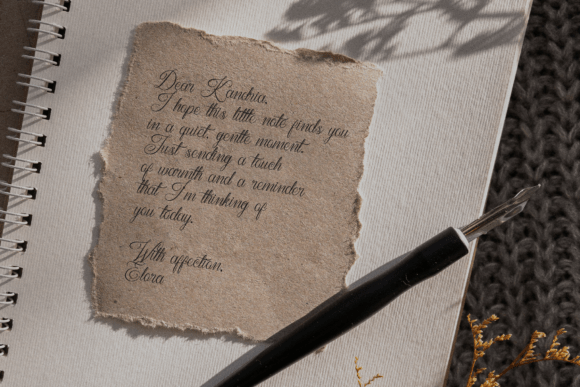 Dear Kandria,
I hope this little note finds you
in a quiet, gentle moment.
Just sending a touch
of warmth and a reminder
that I'm thinking of
you today.
With affection,
Elora